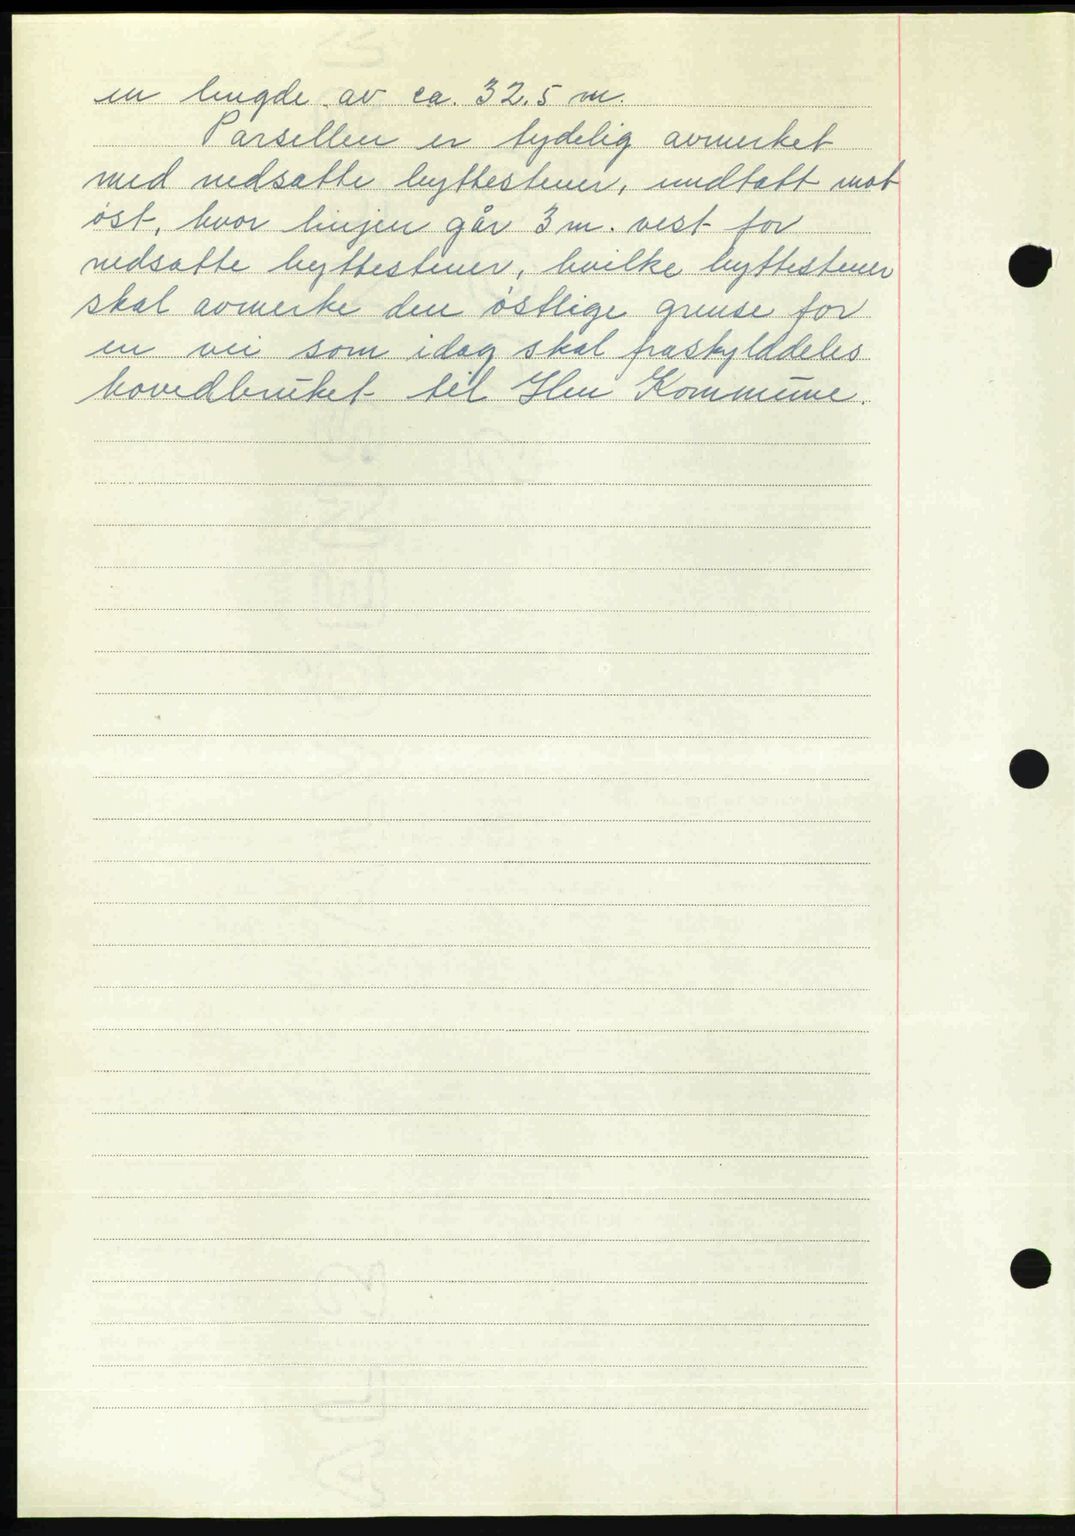 en lengde av ca. 32.5 m.
Parsellen er tydelig avmerket
med nedsatte byttestener, undtatt mot
øst, hvor linjen går 3 m. vest for
nedsatte byttestener, hvilke byttestener
skal avmerke den østlige grense for
en vei som idag skal fraskylddeles
hovedbruket til Hen Kommune.